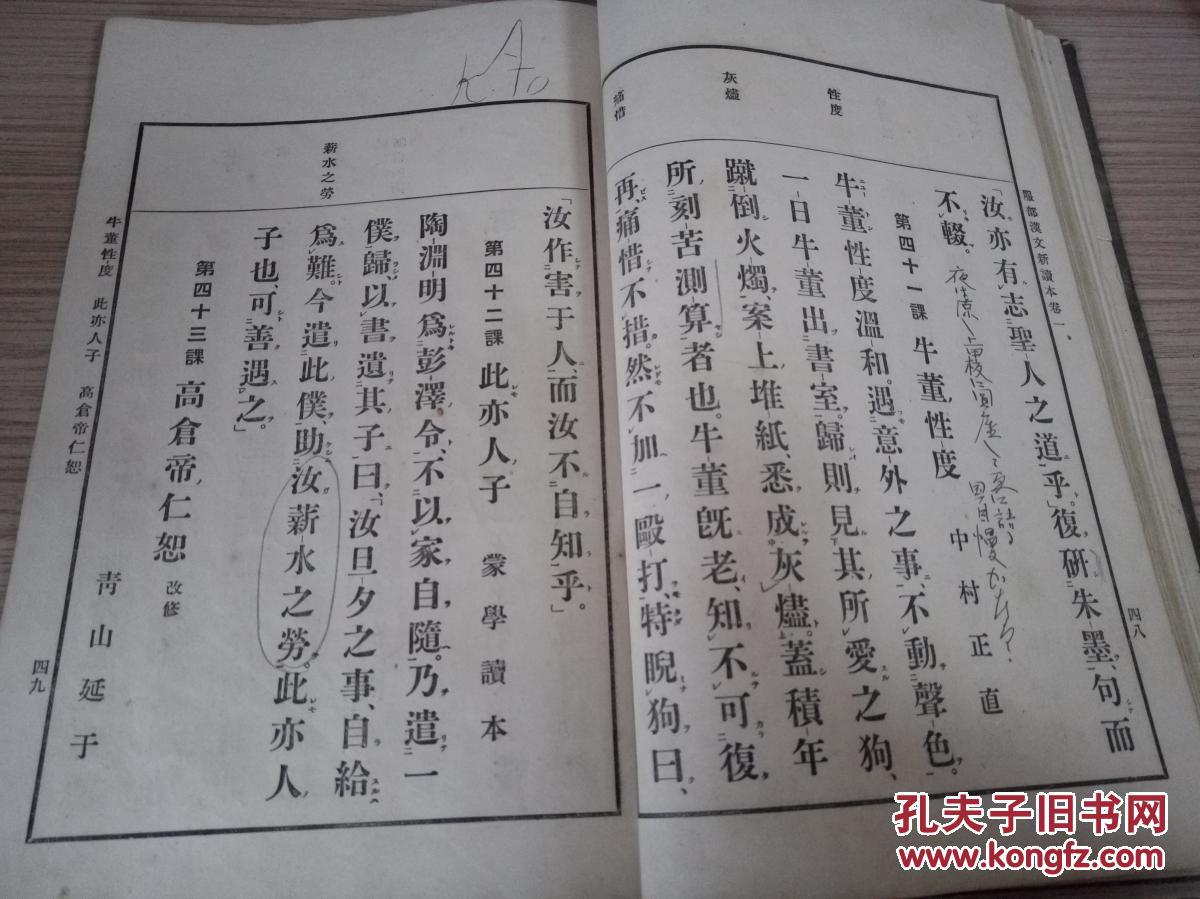 服部漢文新讀本卷一
四八
性度
灰燼
痛惜
「汝亦有志聖人之道乎。」復研朱墨、句而
不輟。
第四十一課 牛董性度 中村正直
牛董性度溫和。遇意外之事、不動聲色。
一日牛董出書室。歸則見其所愛之狗、
蹴倒火燭、案上堆紙、悉成灰燼。蓋積年
所刻苦測算者也。牛董既老、知不可復
再、痛惜不措。然不加一毆打、特睨狗曰、
「汝作害于人、而汝不自知乎。」
第四十二課 此亦人子 蒙學讀本
薪水之勞
陶淵明爲彭澤令、不以家自隨。乃遣一
僕歸、以書遺其子曰、「汝旦夕之事、自給
爲難。今遣此僕、助汝薪水之勞。此亦人
子也、可善遇之。」
第四十三課 高倉帝仁恕 改修 靑山延于
牛董性度 此亦人子 高倉帝仁恕
四九
孔夫子旧书网
www.kongfz.com